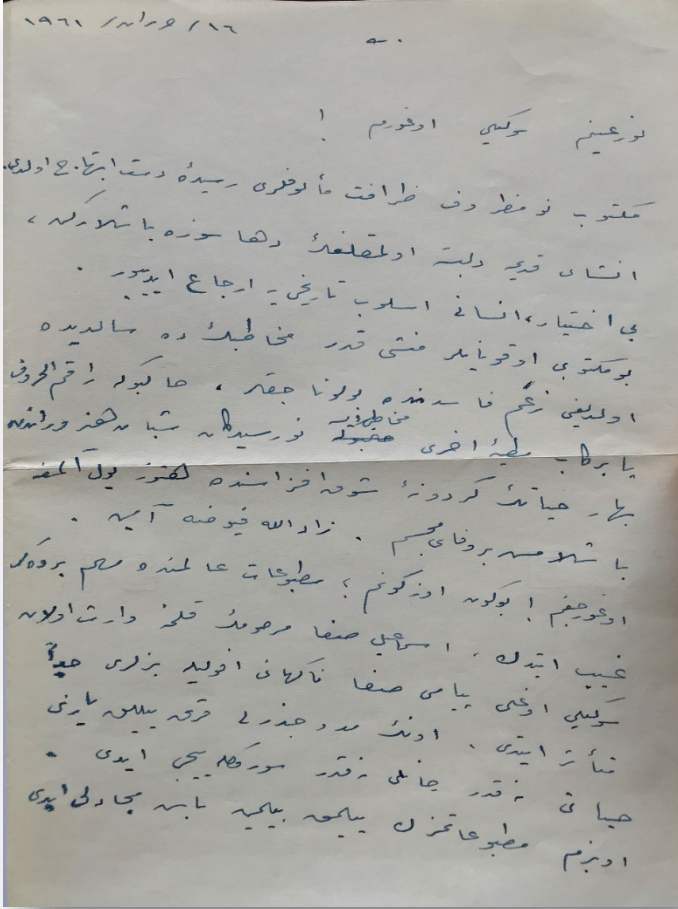 ١٦/حزيران/ ١٩٦١
نور عينم سوكيلى اوغورم !
مكتوب نو مظروف ظرافت مألوفلرى رسيدهٔ دست ابتهاج اولدى.
انشاى قديمه دلبسته اولمقلغك دها سوزه باشلاركن ،
بى اختيار، انسانى اسلوب تاريخى يه ارجاع ايدييور .
بو مكتوبى اوقويانلر منشى قدر مخاطبك ده سالديده
اولديغى زعم فاسدنده بولوناجقلر ، حالبوكه راقم الحروف
پا بركاب اخرى مخاطب نورسيدكان شباب هنوز وراننده
بهار حياتك كردونهٔ شوق افزاسنده هنوز يول آلمغه
باشلامش بر وفاى مجسم . زادالله فيوضه آمين .
اوغورجغم ! بوكون اوزكونم ؛ مطبوعات عالمنده مهم بر ركن
غيب ايتدك . اسماعيل صفا مرحومك قلمنه وارث اولان
سوكيلى اوغلى پيامى صفا ناكهانى افوليله بزلرى جداً
متأثر ايتدى . اونك مد و جذرلى قرق ييللق يازى
حياتى نه قدر جانلى نه قدر سوركله ييجى ايدى .
او بزم مطبوعاتمزك ييلمق بيلمين يامان مجادلى ايدى